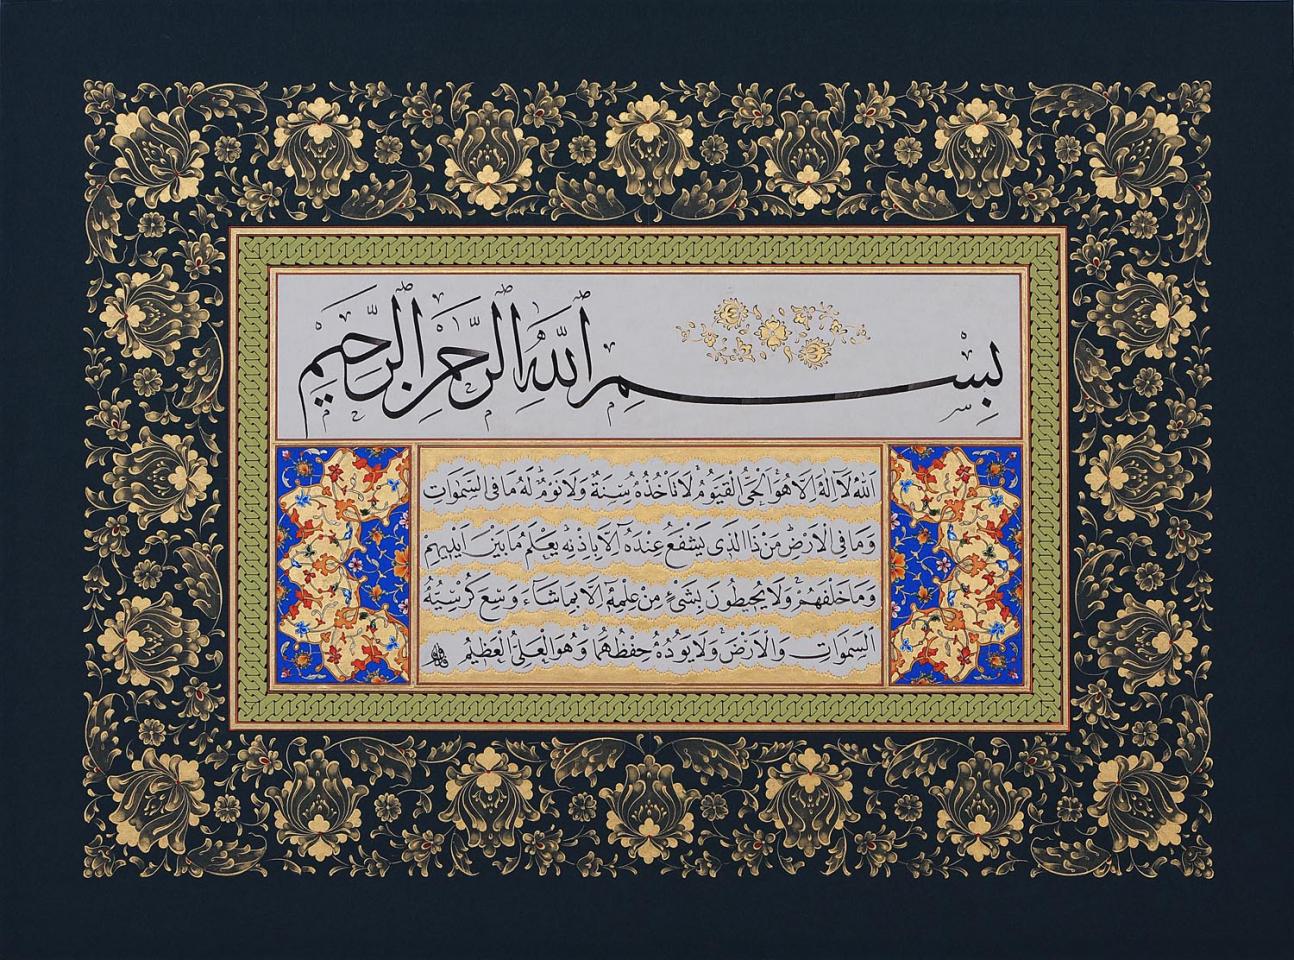 بِسْمِ اللّٰهِ الرَّحْمٰنِ الرَّحِيمِ
اَللّٰهُ لَٓا اِلٰهَ اِلَّا هُوَ اَلْحَيُّ الْقَيُّومُ لَا تَأْخُذُهُ سِنَةٌ وَلَا نَوْمٌ لَهُ مَا فِي السَّمٰوَاتِ
وَمَا فِي الْاَرْضِ مَنْ ذَا الَّذِي يَشْفَعُ عِنْدَهُٓ اِلَّا بِاِذْنِهِ يَعْلَمُ مَا بَيْنَ اَيْدِيهِمْ
وَمَا خَلْفَهُمْ وَلَا يُحِيطُونَ بِشَيْءٍ مِنْ عِلْمِهِٓ اِلَّا بِمَا شَٓاءَ وَسِعَ كُرْسِيُّهُ
السَّمٰوَاتِ وَالْاَرْضَ وَلَا يَؤُدُهُ حِفْظُهُمَا وَهُوَ الْعَلِيُّ الْعَظِيمُ